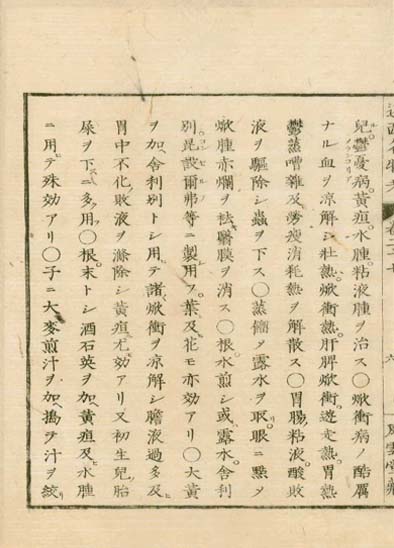 兒鬱憂病黄疸水腫粘液腫ヲ治ス〇焮衝病ノ酷厲
ナル血ヲ凉解シ壮熱焮衝熱肝脾焮衝遊走熱胃熱
鬱蒸嘈雜及勞瘦消耗熱ヲ解散ス〇胃腸粘液酸敗
液ヲ驅除シ蟲ヲ下ス〇蒸餾メ露水ヲ取眼ニ㸃メ
焮腫赤爛ヲ祛翳膜ヲ消ス〇根水煎シ或露水舎利
別昆設爾弗等ニ製用フ葉及花モ亦効アリ〇大黄
ヲ加舎利別トシ用テ諸焮衝ヲ凉解シ膽液過多及
胃中不化敗液ヲ滌除シ黄疸尤効アリ又初生兒胎
屎ヲ下スニ多用〇根末トシ酒石英ヲ加黄疸及水腫
ニ用テ殊効アリ〇子ニ大麥煎汁ヲ加搗テ汁ヲ絞